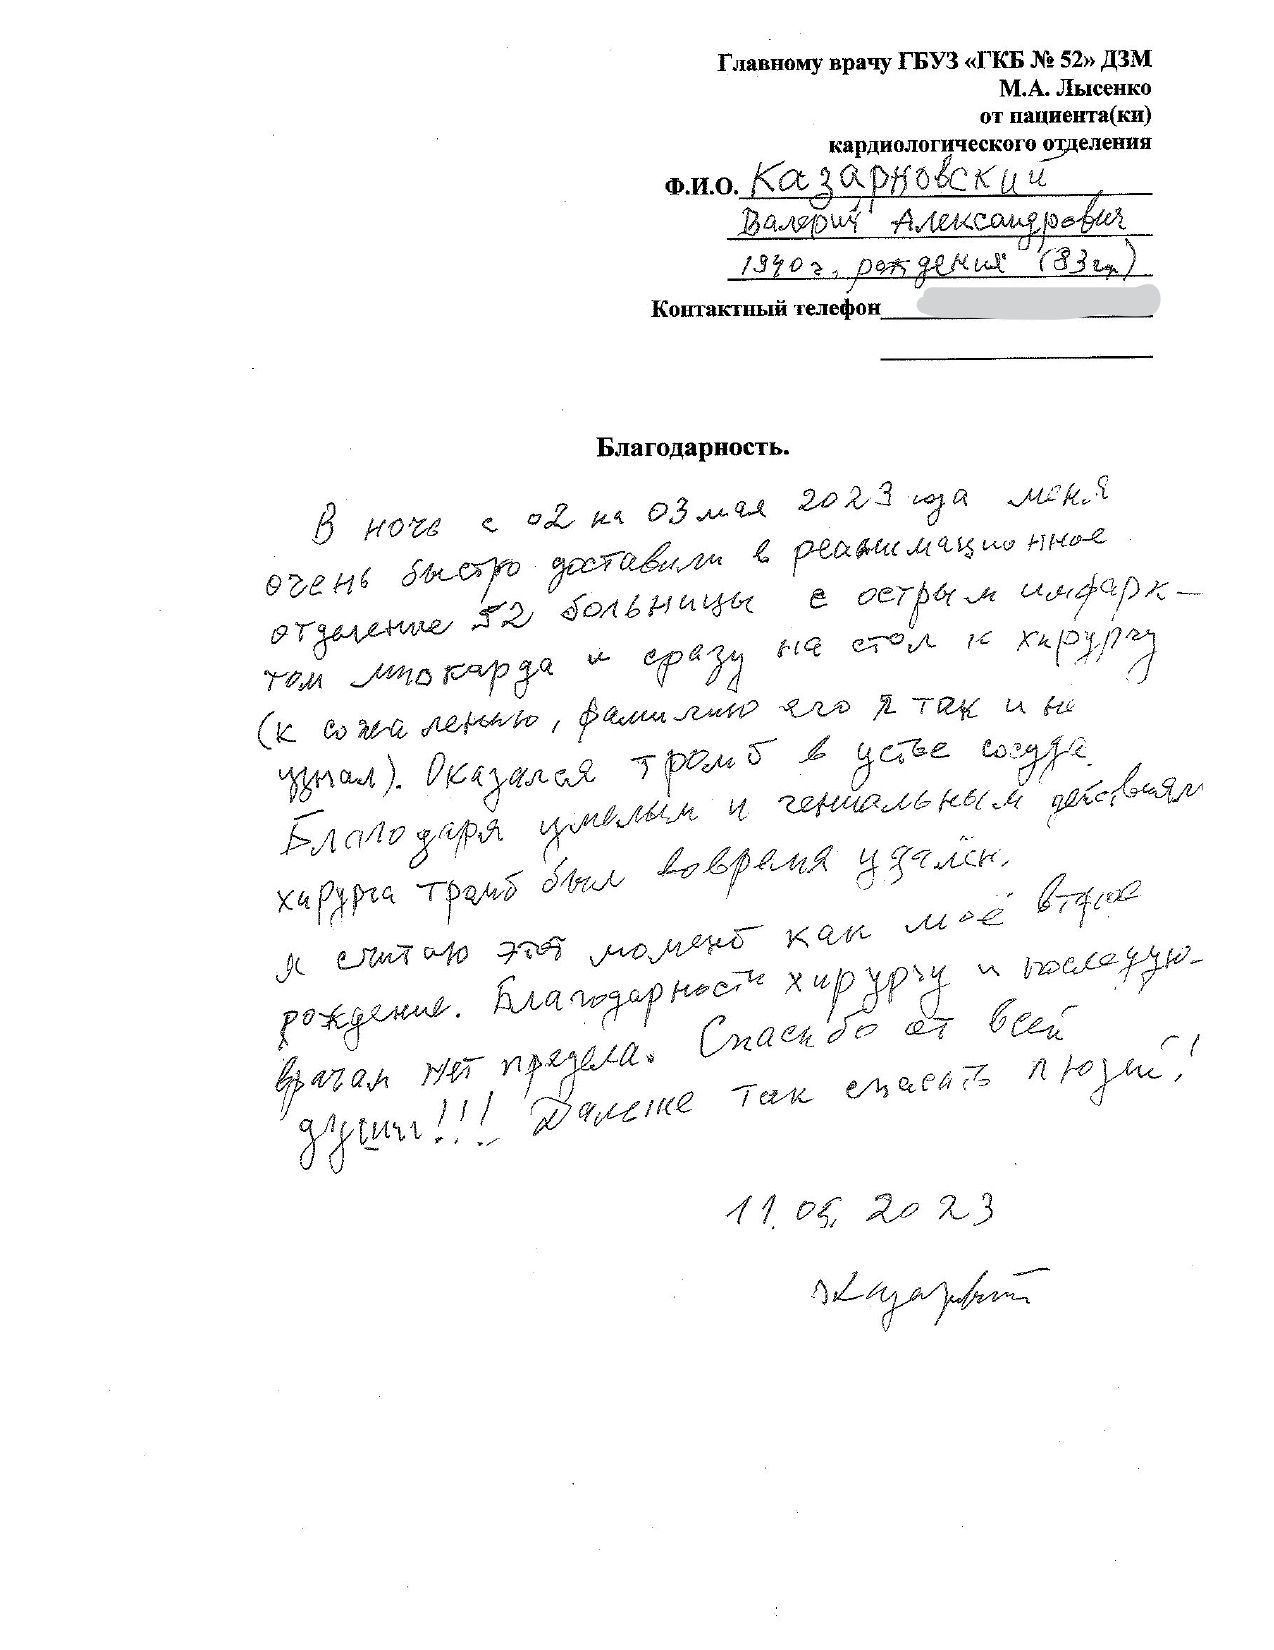 Главному врачу ГБУЗ «ГКБ № 52» ДЗМ
М.А. Лысенко
от пациента(ки)
кардиологического отделения
Ф.И.О. Казарновский
Валерий Александрович
1940 г. рождения (83 г.)
Контактный телефон
Благодарность.
В ночь с 02 на 03 мая 2023 года меня
очень быстро доставили в реанимационное
отделение 52 больницы с острым инфарк-
том миокарда и сразу на стол к хирургу
(к сожалению, фамилию его я так и не
узнал). Оказался тромб в устье сосуда.
Благодаря умелым и гениальным действиям
хирурга тромб был вовремя удалён.
Я считаю этот момент как моё второе
рождение. Благодарности хирургу и последую-
врачам нет предела. Спасибо от всей
души!!! Дальше так спасать людей!
11.05.2023